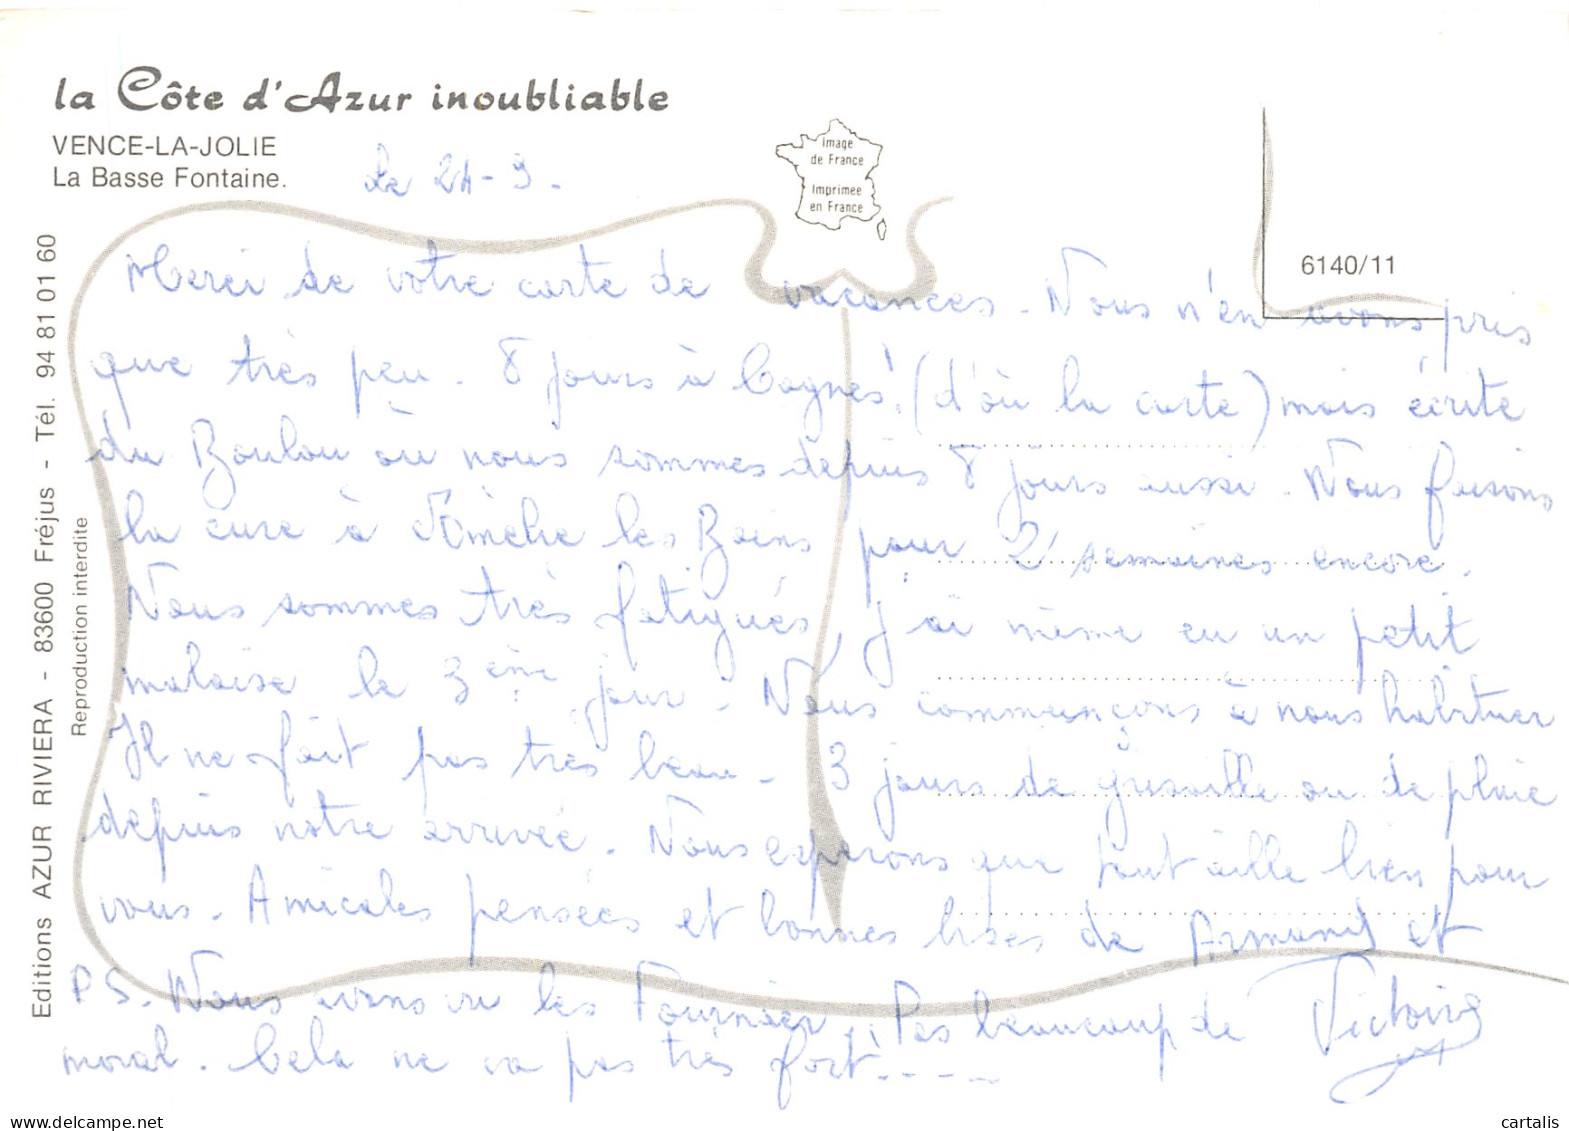 la Côte d'Azur inoubliable
VENCE-LA-JOLIE
La Basse Fontaine.
Le 21-9-
Image
de France
Imprimée
en France
6140/11
Editions AZUR RIVIERA - 83600 Fréjus - Tél. 94 81 01 60
Reproduction interdite
Merci de votre carte de vacances. Nous n'en avons pris
que très peu. 8 jours à Cagnes! (d'où la carte) mais écrite
du Boulou où nous sommes depuis 8 jours aussi. Nous faisons
la cure à les Bains pour 2 semaines encore.
Nous sommes très fatigués, j'ai même eu un petit
malaise le 3ème jour. Nous commençons à nous habituer
Il ne fait pas très beau - 3 jours de grisaille ou de pluie
depuis notre arrivée. Nous esperons que tout aille bien pour
vous. Amicales pensées et bonnes bises de Armand et
Victoire
P.S. Nous avons vu les Fournier. Pas beaucoup de
moral. Cela ne va pas très fort!----
cartalis